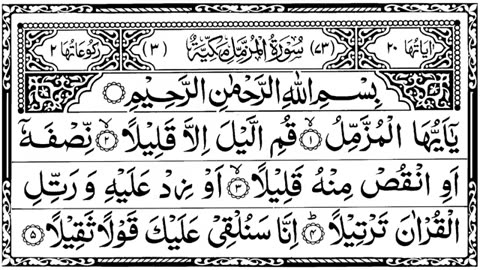 اٰيَاتُهَا ٢٠ (٧٣) سُوْرَةُ الْمُزَّمِّلِ مَكِّيَّةٌ (٣) رُكُوْعَاتُهَا ٢
بِسْمِ اللّٰهِ الرَّحْمٰنِ الرَّحِيْمِ
يٰۤاَيُّهَا الْمُزَّمِّلُ ۙ﴿١﴾ قُمِ الَّيْلَ اِلَّا قَلِيْلًا ۙ﴿٢﴾ نِّصْفَهٗۤ
اَوِ انْقُصْ مِنْهُ قَلِيْلًا ۙ﴿٣﴾ اَوْ زِدْ عَلَيْهِ وَ رَتِّلِ
الْقُرْاٰنَ تَرْتِيْلًا ؕ﴿٤﴾ اِنَّا سَنُلْقِيْ عَلَيْكَ قَوْلًا ثَقِيْلًا ﴿٥﴾